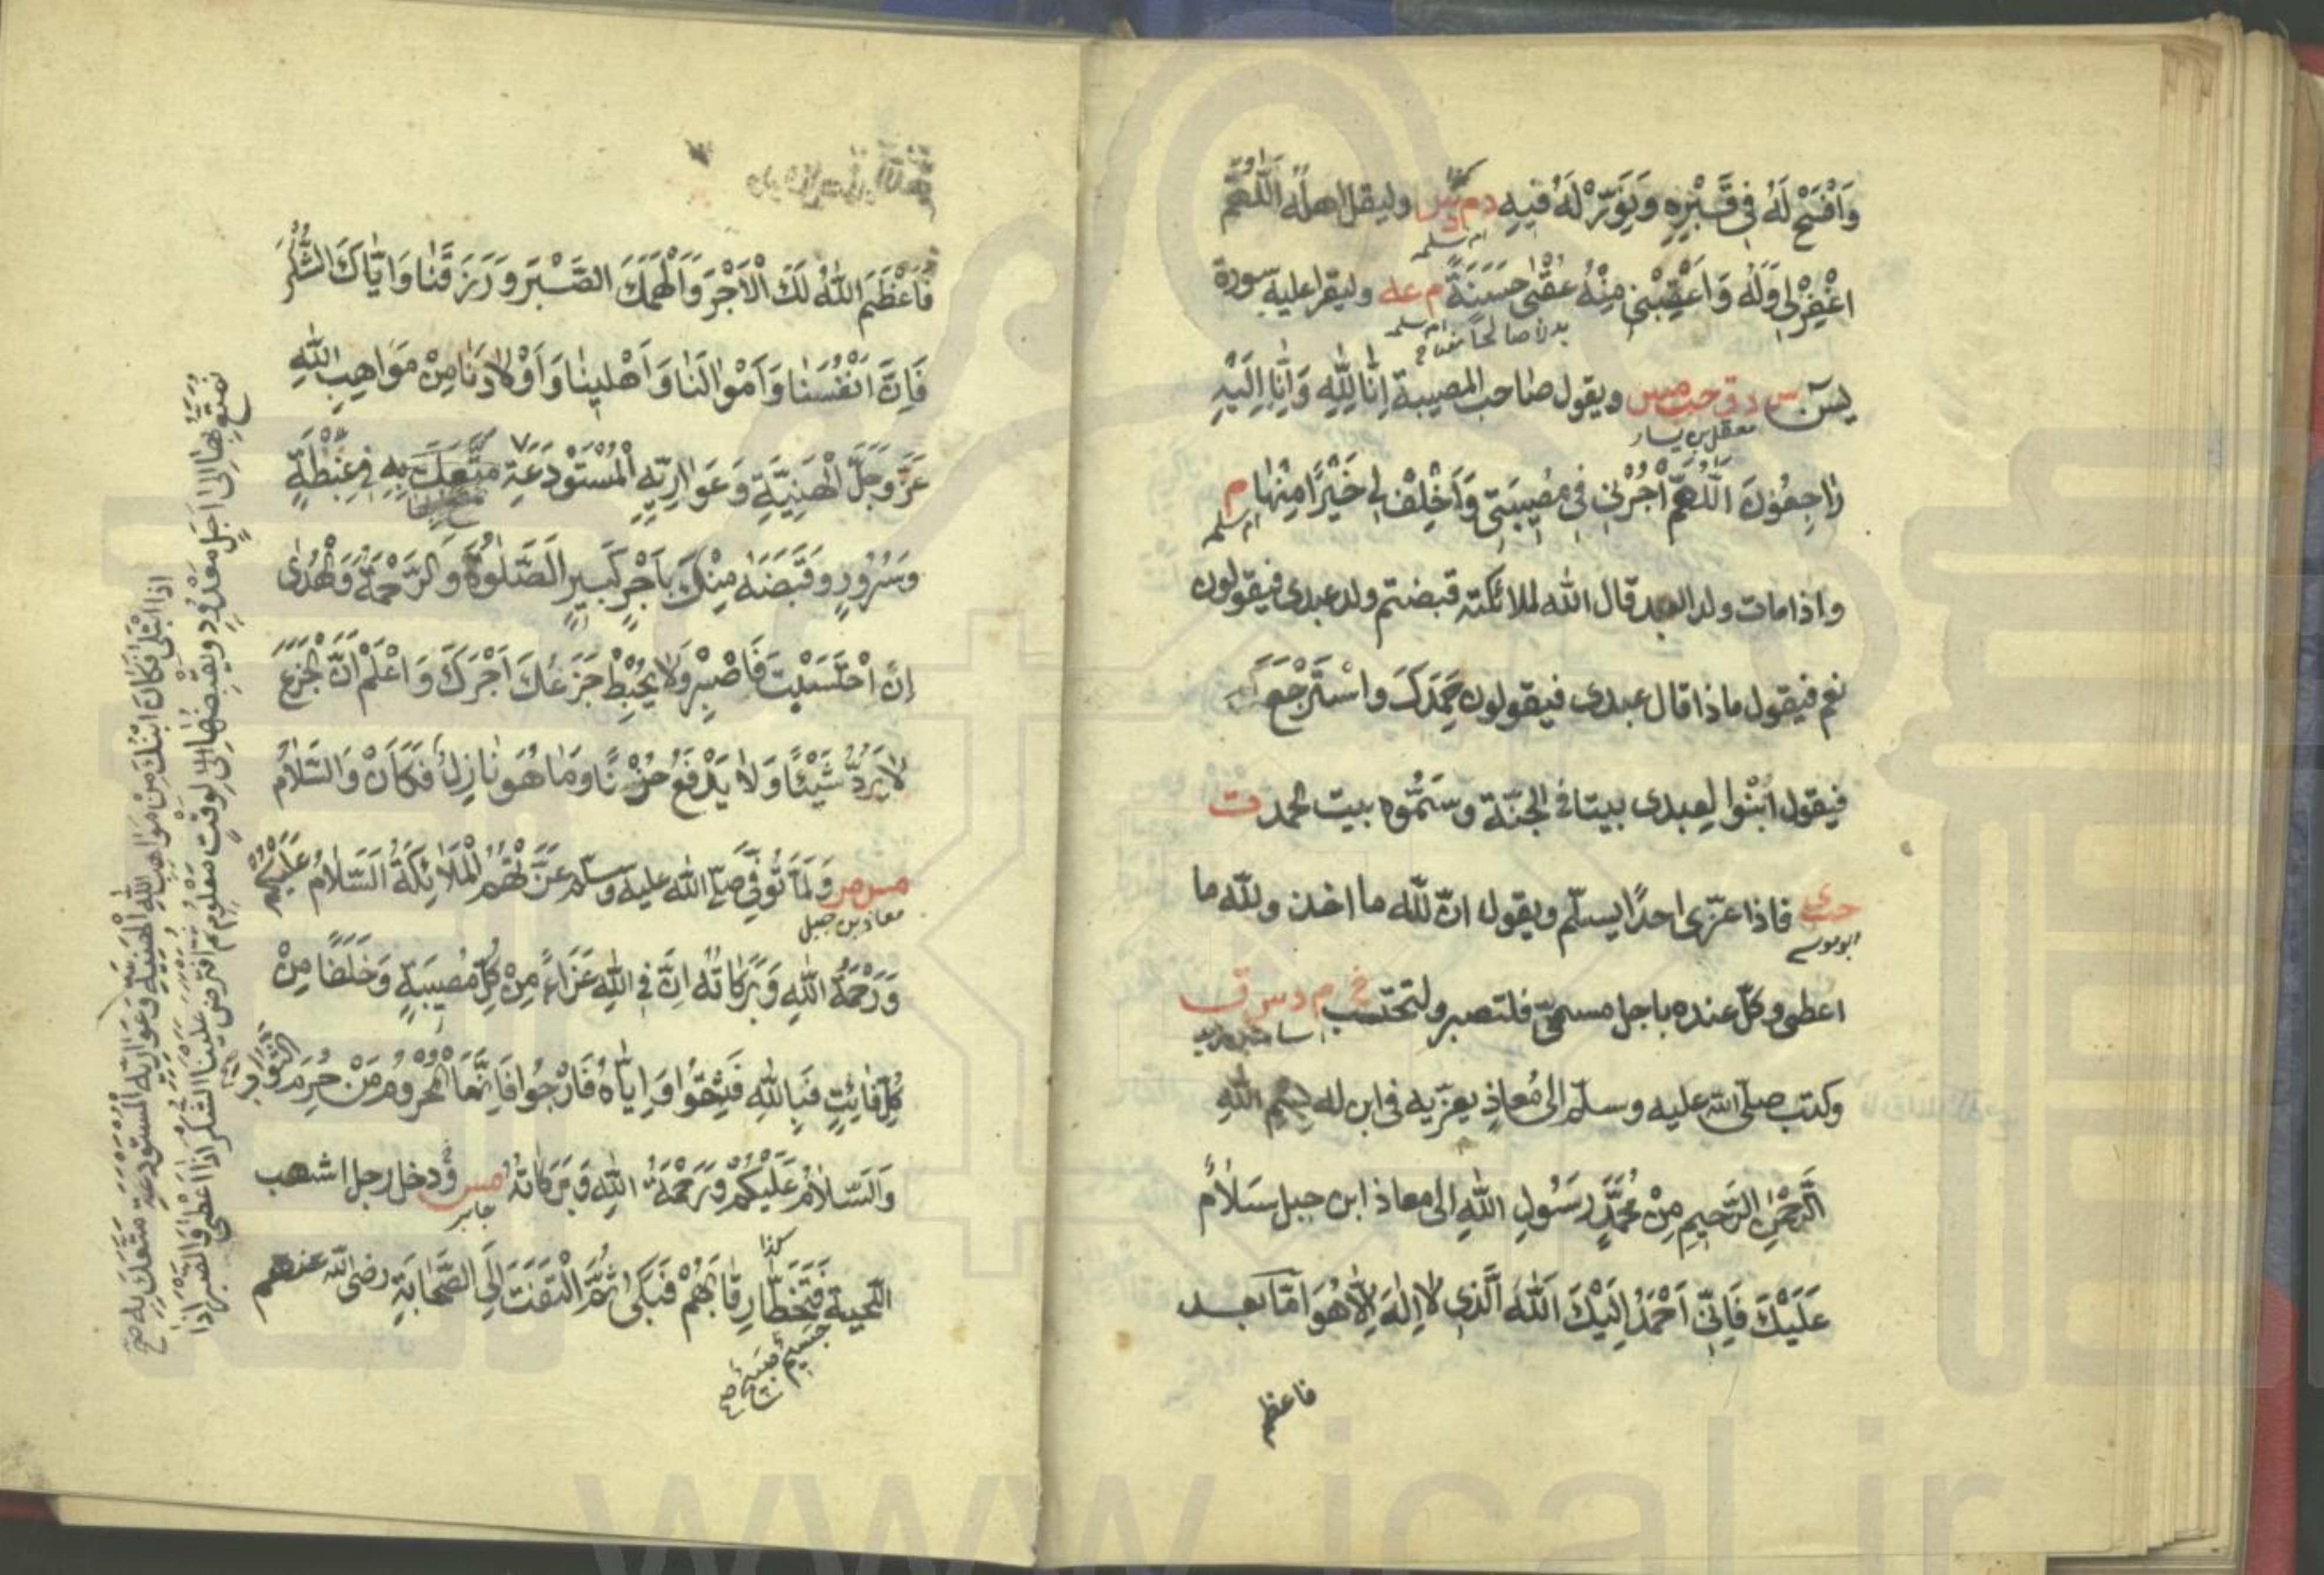 وَافْسَحْ لَهُ فِي قَبْرِهِ وَنَوِّرْ لَهُ فِيهِ م د س ق وليقل اهله اَللّٰهُمَّ
ام سلمه
اغْفِرْ لِي وَلَهُ وَاَعْقِبْنِي مِنْهُ عُقْبٰى حَسَنَةً م عه وليقرا عليه سورة
ام سلمه
بدلا صالحا
يسٓ س د ق حب مس ويقول صاحب المصيبة اِنَّا لِلّٰهِ وَاِنَّا اِلَيْهِ
معقل بن يسار
رَاجِعُونَ اَللّٰهُمَّ اْجُرْنِي فِي مُصِيبَتِي وَاَخْلِفْ لِي خَيْرًا مِنْهَا م
ام سلمه
واذا مات ولد العبد قال الله لملائكته قبضتم ولد عبدى فيقولون
نعم فيقول ماذا قال عبدى فيقولون حَمِدَكَ وَاسْتَرْجَعَ
فيقول ابْنُوا لعبدى بيتا فى الجنّة وسَمُّوه بيت الحمد ت
حب ى فاذا عزّى احدًا يسلّم ويقول انّ للّه ما اخذ وللّه ما
ابو موسى
اعطى وكلّ عنده باجل مسمّى فلتصبر ولتحتسب خ م د س ق
اسامة بن زيد
وكتب صلّى الله عليه وسلّم الى مُعاذٍ يعزّيه فى ابن له بِسْمِ اللّٰهِ
الرَّحْمٰنِ الرَّحِيمِ مِنْ مُحَمَّدٍ رَسُولِ اللّٰهِ الى معاذ ابن جبل سَلَامٌ
عَلَيْكَ فَاِنِّي اَحْمَدُ اِلَيْكَ اللّٰهَ الَّذِي لَا اِلٰهَ اِلَّا هُوَ اَمَّا بعد
فاعظم
فَاَعْظَمَ اللّٰهُ لَكَ الْاَجْرَ وَاَلْهَمَكَ الصَّبْرَ وَرَزَقَنَا وَاِيَّاكَ الشُّكْرَ
فَاِنَّ اَنْفُسَنَا وَاَمْوَالَنَا وَاَهْلِينَا وَاَوْلَادَنَا مِنْ مَوَاهِبِ اللّٰهِ
عَزَّ وَجَلَّ الْهَنِيَّةِ وَعَوَارِيِّهِ الْمُسْتَوْدَعَةِ مَتَّعَكَ بِهِ فِي غِبْطَةٍ
وَسُرُورٍ وَقَبَضَهُ مِنْكَ بِاَجْرٍ كَبِيرٍ اَلصَّلٰوةُ وَالرَّحْمَةُ وَالْهُدٰى
اِنِ احْتَسَبْتَ فَاصْبِرْ وَلَا يُحْبِطْ جَزَعُكَ اَجْرَكَ وَاعْلَمْ اَنَّ الْجَزَعَ
لَا يَرُدُّ شَيْئًا وَلَا يَدْفَعُ حُزْنًا وَمَا هُوَ نَازِلٌ فَكَاَنْ وَالسَّلَامُ
مس مر وَلَمَّا تُوُفِّيَ صلّى الله عليه وسلّم عَزَّتْهُمُ الْمَلَائِكَةُ اَلسَّلَامُ عَلَيْكُمْ
معاذ بن جبل
وَرَحْمَةُ اللّٰهِ وَبَرَكَاتُهُ اِنَّ فِي اللّٰهِ عَزَاءً مِنْ كُلِّ مُصِيبَةٍ وَخَلَفًا مِنْ
كُلِّ فَائِتٍ فَبِاللّٰهِ فَثِقُوا وَاِيَّاهُ فَارْجُوا فَاِنَّمَا الْمَحْرُومُ مَنْ حُرِمَ الثَّوَابَ
وَالسَّلَامُ عَلَيْكُمْ وَرَحْمَةُ اللّٰهِ وَبَرَكَاتُهُ مس وَدخل رجل اشهب
جابر
كذا
اللحية فَتَخَطَّا رِقَابَهُمْ فَبَكٰى ثُمَّ الْتَفَتَ اِلَى الصَّحَابَةِ رضى الله عنهم
جسيم صبيح صح
نُمَتَّعُ بِهَا اِلٰى اَجَلٍ مَعْدُودٍ وَيَقْبِضُهَا لِوَقْتٍ مَعْلُومٍ ثُمَّ افْتَرَضَ عَلَيْنَا الشُّكْرَ اِذَا اَعْطٰى وَالصَّبْرَ اِذَا
اِذَا ابْتَلٰى فَكَانَ ابْنُكَ مِنْ مَوَاهِبِ اللّٰهِ الْهَنِيَّةِ وَعَوَارِيِّهِ الْمُسْتَوْدَعَةِ مَتَّعَكَ بِهِ صح